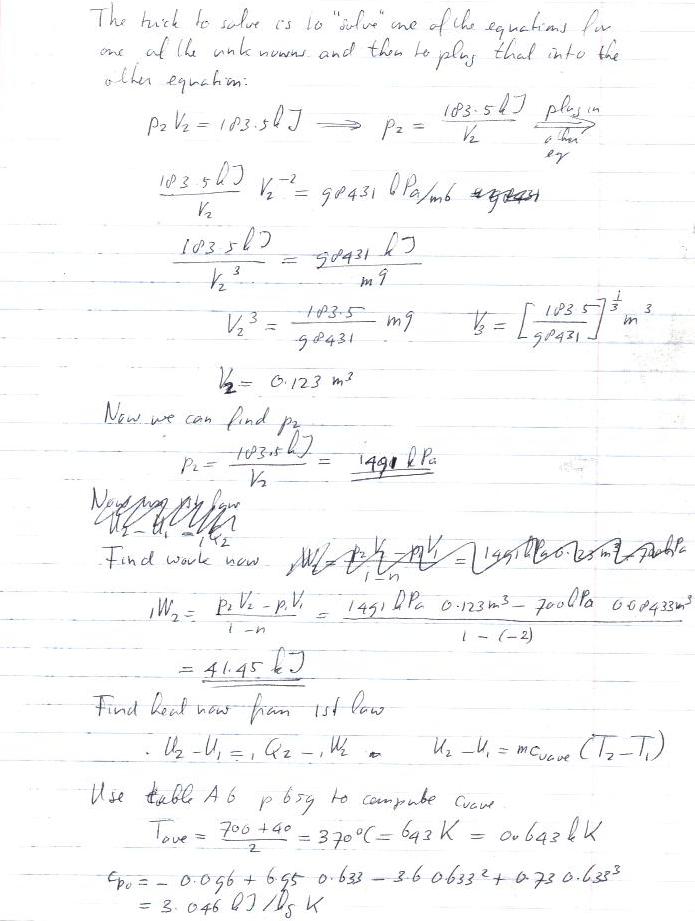 The trick to solve is to "solve" one of the equations for
one of the unknowns and then to plug that into the
other equation:
p₂V₂ = 183.5kJ ⟹ p₂ = 183.5kJ / V₂ plug in other eq
183.5kJ / V₂ V₂⁻² = 98431 kPa/m6
183.5kJ / V₂³ = 98431 kJ / m9
V₂³ = 183.5 / 98431 m9 V₃ = [183.5 / 98431]^(1/3) m³
V₂ = 0.123 m³
Now we can find p₂
p₂ = 183.5kJ / V₂ = 1491 kPa
Find work now
₁W₂ = (p₂V₂ - p₁V₁) / (1 - n) = (1491 kPa 0.123m³ - 700kPa 0.08433m³) / (1 - (-2))
= 41.45 kJ
Find heat now from 1st law
U₂ - U₁ = ₁Q₂ - ₁W₂ U₂ - U₁ = m cvave (T₂ - T₁)
Use table A6 p 659 to compute cvave
Tave = (700 + 40) / 2 = 370°C = 643 K = 0.643 kK
cp0 = - 0.096 + 6.95 0.633 - 3.6 0.633² + 0.73 0.633³
= 3.046 kJ/kg K